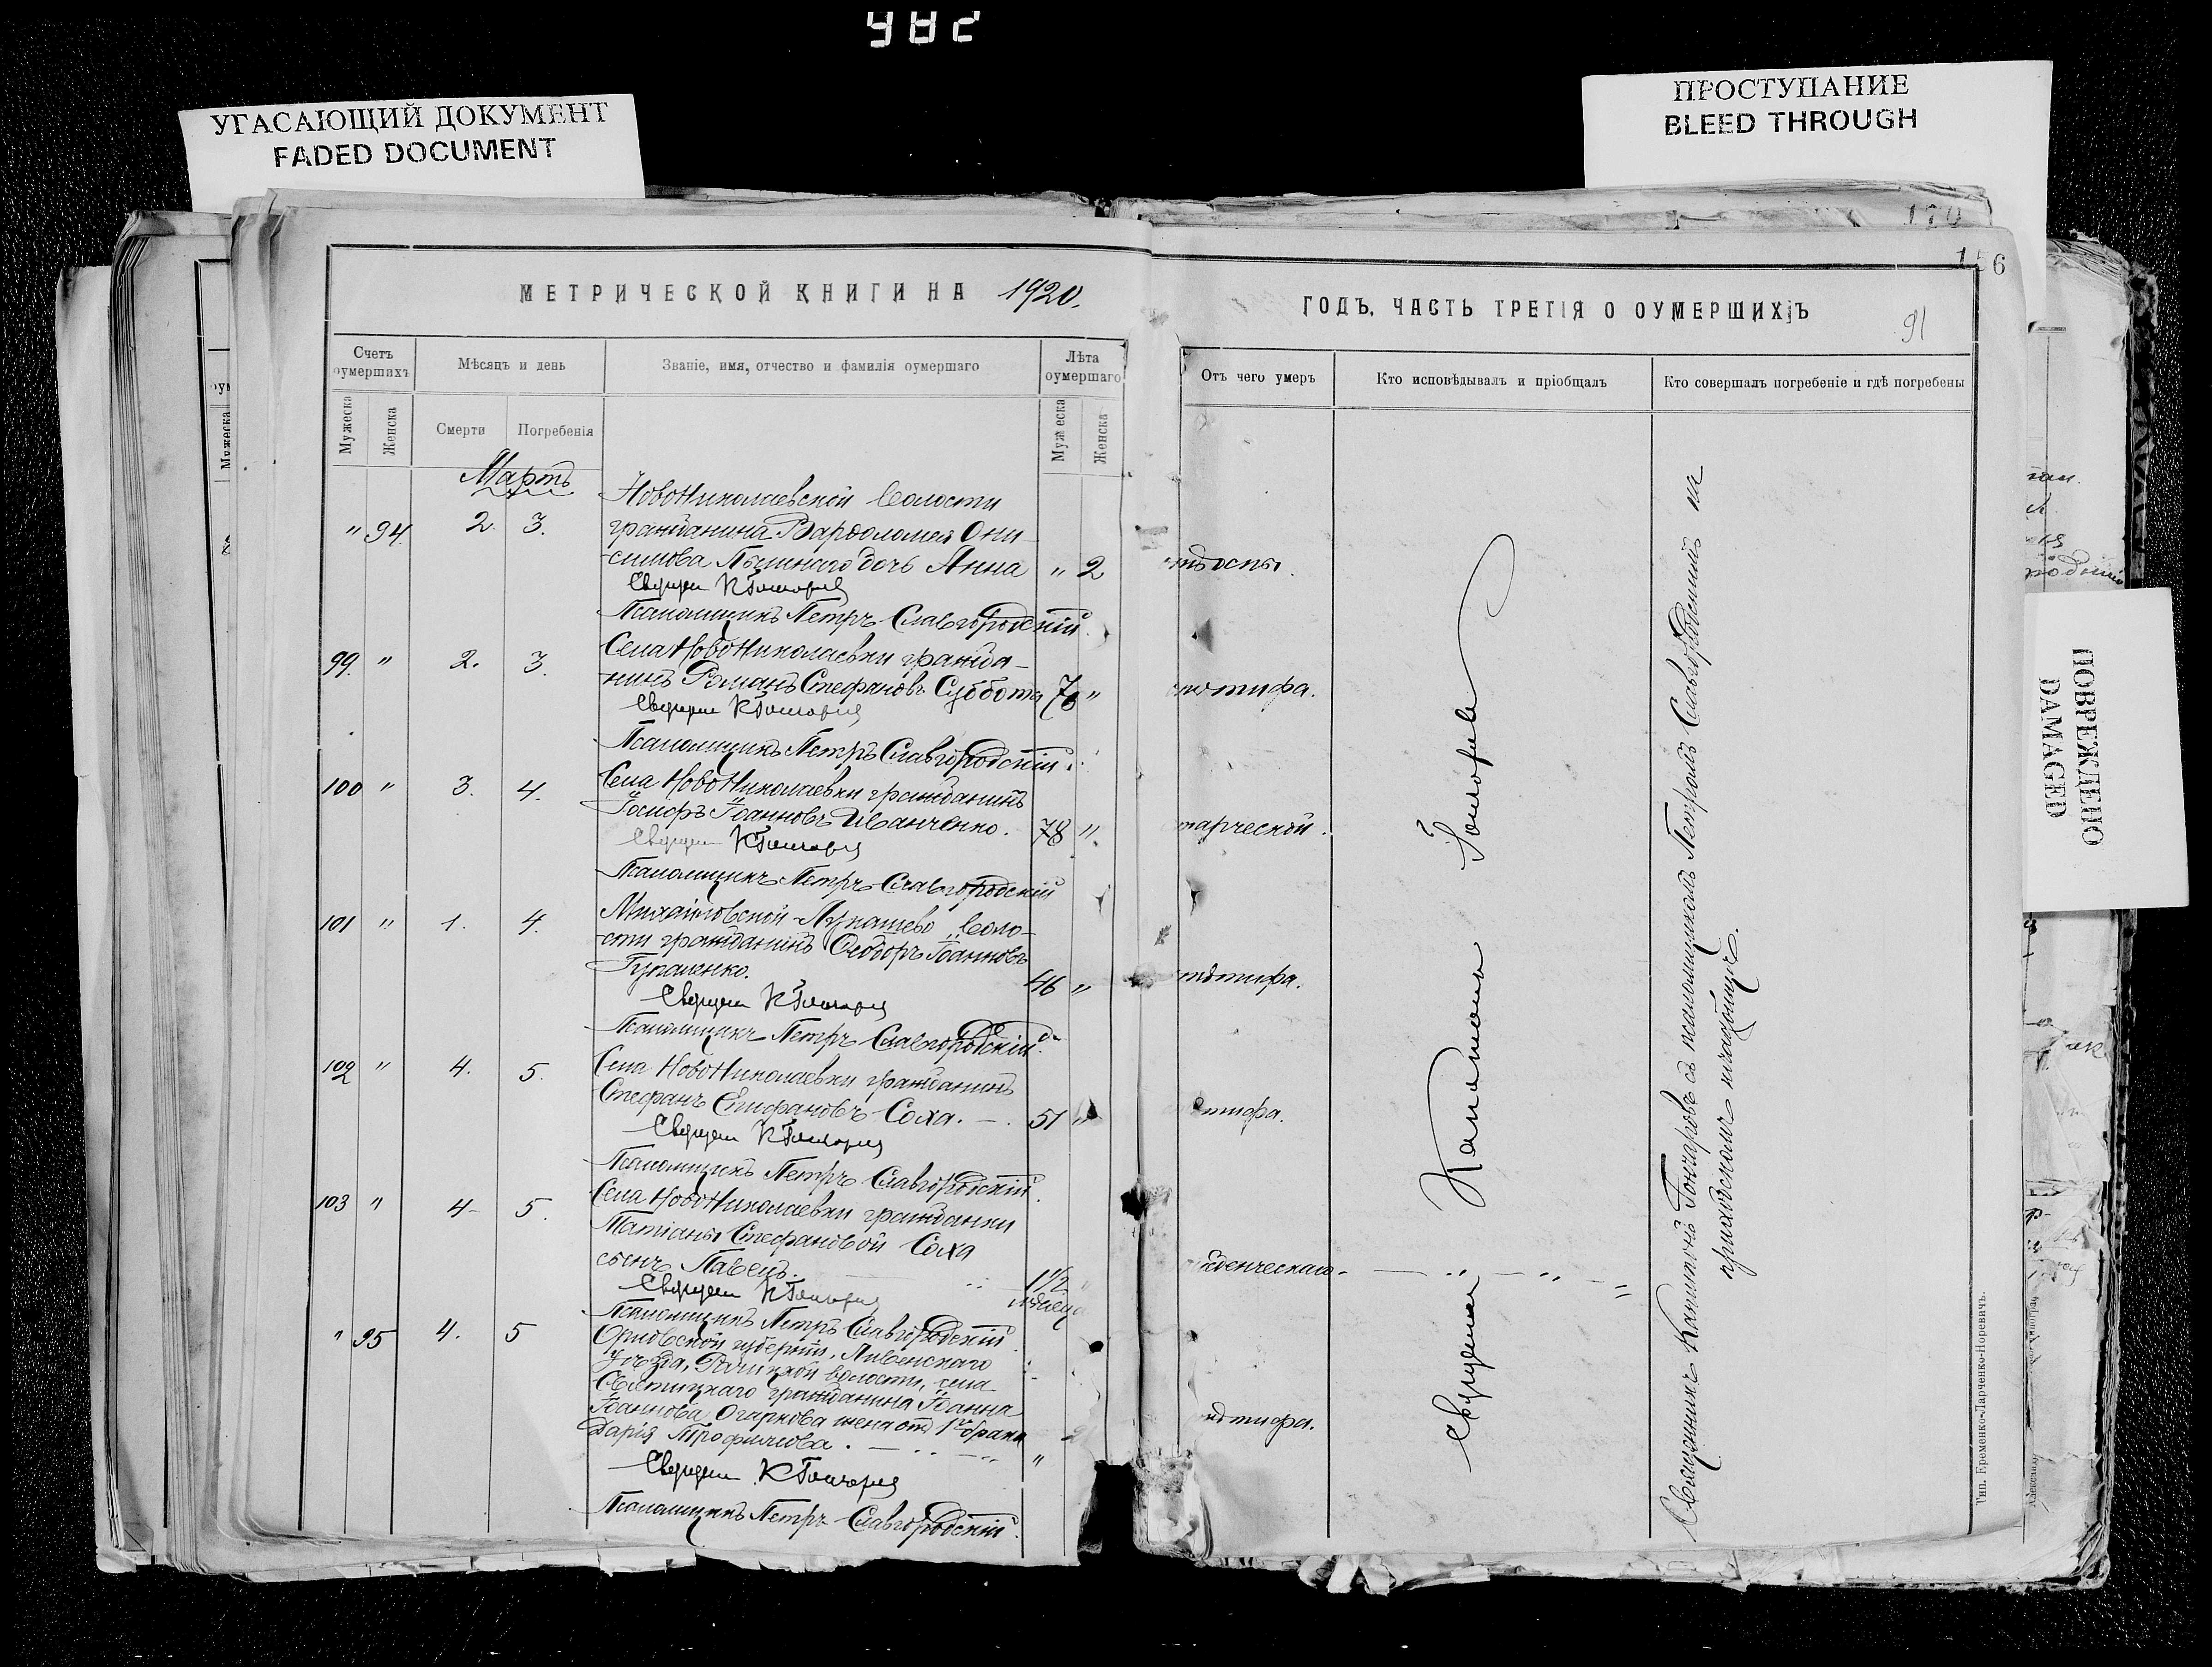 982
УГАСАЮЩИЙ ДОКУМЕНТ
FADED DOCUMENT
ПРОСТУПАНИЕ
BLEED THROUGH
170
156
91
МЕТРИЧЕСКОЙ КНИГИ НА 1920.
Счетъ оумершихъ
Мѣсяцъ и день
Званіе, имя, отчество и фамилія оумершаго
Лѣта оумершаго
Мужеска
Женска
Смерти
Погребенія
Мужеска
Женска
Мартъ
НовоНиколаевской волости
" 94 2. 3. гражданина Варѳоломея Они-
симова дочь Анна " 2
Священ К Гончаровъ
Псаломщикъ Петръ Славгородскій
Села НовоНиколаевки гражда-
99. " 2. 3. нинъ Романъ Стефановъ Суббота 78 "
Священ К Гончаровъ
Псаломщикъ Петръ Славгородскій
100 " 3. 4. Села НовоНиколаевки гражданинъ
Іосифъ Іоанновъ Иванченко. 78 "
Священ К Гончаровъ
Псаломщикъ Петръ Славгородскій
101 " 1. 4. Михайловской-Лукашево воло-
сти гражданинъ Ѳеодоръ Іоанновъ
46 "
Священ К Гончаровъ
Псаломщикъ Петръ Славгородскій
102 " 4. 5. Села НовоНиколаевки гражданинъ
Стефанъ Епифановъ Соха. — . 51 "
Священ К Гончаровъ
Псаломщикъ Петръ Славгородскій
103 " 4 5. Села НовоНиколаевки гражданки
Татіаны Стефановой Соха
сынъ Павелъ. 1 1/2 мѣсяца
Священ К Гончаровъ
Псаломщикъ Петръ Славгородскій
" 95 4. 5 Орловской губерніи, Ливенскаго
уѣзда, волости, села
гражданина Іоанна
Іоаннова Огаркова жена отъ 1го брака
Дарія Трофимова. "
Священ К Гончаровъ
Псаломщикъ Петръ Славгородскій
ГОДЪ, ЧАСТЬ ТРЕТІЯ О ОУМЕРШИХЪ
Отъ чего умеръ
Кто исповѣдывалъ и пріобщалъ
Кто совершалъ погребеніе и гдѣ погребены
оспы.
тифа.
тарческой.
тифа.
тифа.
денческаго
тифа.
Священникъ Капитонъ Гончаровъ
Священникъ Капитонъ Гончаровъ съ псаломщикомъ Петромъ Славгородскимъ на
приходскомъ кладбищѣ.
Тип. Еременко-Ларченко-Норевичъ.
ПОВРЕЖДЕНО
DAMAGED